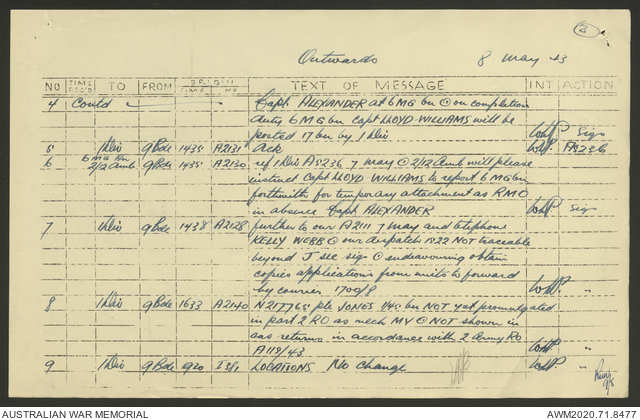 2
Outwards 8 May 43
NO TIME REC'D TO FROM ORIGIN TIME NO TEXT OF MESSAGE INT ACTION
4 Contd Capt ALEXANDER at 6 MG bn ⊙ on completion
duty 6 MG bn Capt LLOYD WILLIAMS will be
posted 17 bn by 1 Div WHP. Sigs
5 1 Div 9 Bde 1435 A2131 Ack WHP. A5236
6 6 MG Bn 2/12 Amb 9 Bde 1435 A2130 ref 1 Div A5236 7 May ⊙ 2/12 Amb will please
instruct Capt LLOYD WILLIAMS to report 6 MG bn
forthwith for temporary attachment as RMO
in absence Capt ALEXANDER WHP. Sigs
7 1 Div 9 Bde 1438 A2128 further to our A2111 7 May and telephone
KELLY WEBB ⊙ our despatch 1522 NOT traceable
beyond J sec sigs ⊙ endeavouring obtain
copies applications from units to forward
by courier 1700/8 WHP. "
8 1 Div 9 Bde 1633 A2140 N217765 pte JONES 1/45 bn NOT yet promulgated
in part 2 RO as mech MV ⊙ NOT shown in
aas returns in accordance with 2 Army RO
A119/43 WHP. "
9 1 Div 9 Bde 920 I 31 LOCATIONS No change WHP. "
9/5
AUSTRALIAN WAR MEMORIAL AWM2020.71.8477